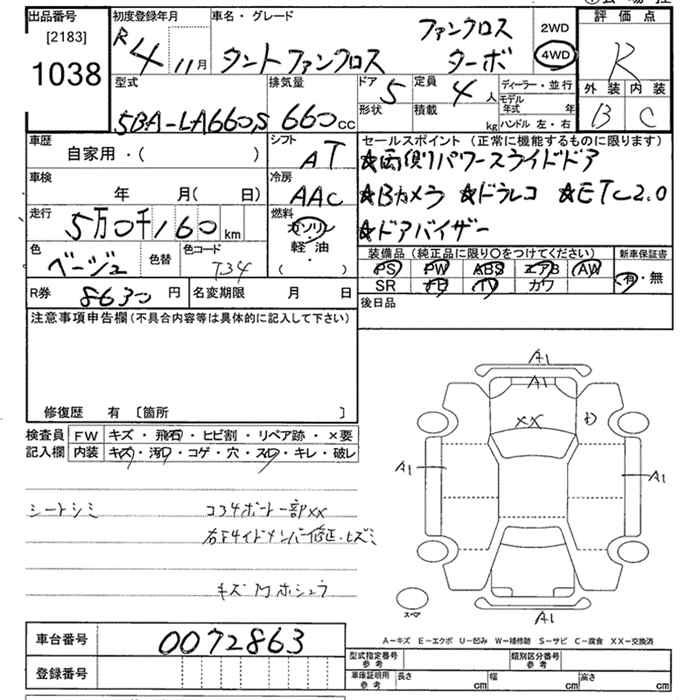 出品番号
[2183]
1038
初度登録年月
R4 11月
車名・グレード
タントファンクロス
ファンクロス
ターボ
2WD
4WD
評価点
R
外装 内装
B C
型式
5BA-LA660S
排気量
660cc
ドア
5
定員
4人
形状
積載
kg
ディーラー・並行
モデル年式 年
ハンドル 左・右
車歴
自家用・( )
シフト
AT
車検
年 月(日)
冷房
AAC
走行
5万0千160km
燃料
ガソリン
軽・油
( )
色
ベージュ
色替
色コード
T34
R券
8630円
名変期限 月 日
セールスポイント(正常に機能するものに限ります)
★両側パワースライドドア
★Bカメラ ★ドラレコ ★ETC2.0
★ドアバイザー
装備品(純正品に限り〇をつけてください)
PS PW ABS エアB AW
SR ナビ TV カワ
新車保証書
有・無
後日品
注意事項申告欄(不具合内容等は具体的に記入して下さい)
修復歴 有 [箇所 ]
検査員記入欄
FW キズ・飛石・ヒビ割・リペア跡・×要
内装 キズ・汚れ・コゲ・穴・スレ・キレ・破レ
シートシミ
コアサポート一部XX
右Fサイドメンバー修正・ヒズミ
A1
A1
XX
A1
A1
A1
スペア
A-キズ E-エクボ U-凹み W-補修跡 S-サビ C-腐食 XX-交換済
車台番号
0072863
登録番号
型式指定番号
参考
類別区分番号
参考
車庫証明用
参考
長さ cm
幅 cm
高さ cm